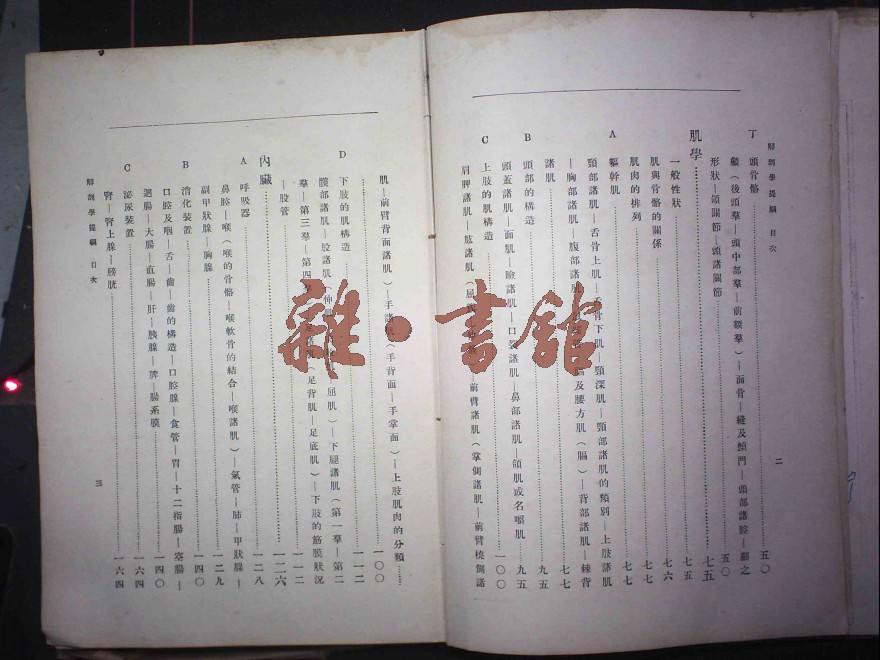 解剖學提綱 目次
二
丁 頭骨骼 五〇
顱(後頭羣—頭中部羣—前額羣)—面骨—縫及顖門—頭部諸腔—顱之
形狀—頜關節—頭諸關節 五〇
肌學 七五
一般性狀 七五
肌與骨骼的關係 七六
肌肉的排列 七七
A 軀幹肌 七七
頸部諸肌—舌骨上肌—舌骨下肌—頸深肌—頸部諸肌的類別—上肢諸肌
—胸部諸肌—腹部諸肌 及腰方肌(膈)—背部諸肌—棘背
諸肌 七七
B 頭部的構造 九五
頭蓋諸肌—面肌—瞼諸肌—口裂諸肌—鼻部諸肌—頜肌或名嚼肌 九五
C 上肢的肌構造 一〇〇
肩胛諸肌—肱諸肌(屈 前臂諸肌(掌側諸肌—前臂橈側諸
肌—前臂背面諸肌)—手諸肌(手背面—手掌面)—上肢肌肉的分類
一〇〇
D 下肢的肌構造 一一二
髖部諸肌—股諸肌(伸 屈肌)—下腿諸肌(第一羣—第二
羣—第三羣—第四 (足背肌—足底肌)—下肢的筋膜狀況
—股管 一一二
內臟 一二六
A 呼吸器 一二八
鼻腔—喉(喉的骨骼—喉軟骨的結合—喉諸肌)—氣管—肺—甲狀腺—
副甲狀腺—胸腺 一二九
B 消化裝置 一四〇
口腔及咽—舌—齒—齒的構造—口腔腺—食管—胃—十二指腸—空腸—
迴腸—大腸—直腸—肝—胰腺—脾—腸系膜 一四〇
C 泌尿裝置 一六四
腎—腎上腺—膀胱 一六四
解剖學提綱 目次
三
雜·書館